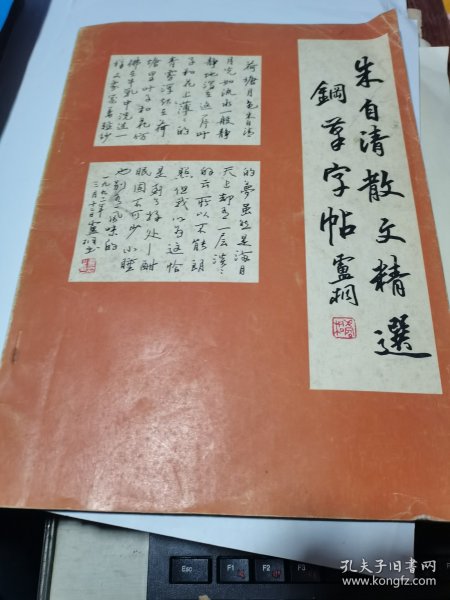 朱自清散文精選
鋼筆字帖 盧桐
荷塘月色 朱自清
月光如流水一般静
静地泻在这一片叶
子和花上薄薄的
青雾浮起在荷
塘里叶子和花仿
佛在牛乳中洗过一
样又象笼着轻纱
的梦虽然是满月
天上却有一层淡淡
的云所以不能朗
照但我以为这恰
是到了好处—酣
眠固不可少小睡
也别有风味的
一九九二年
三月十二日 盧桐书
Esc
F1
F2
F3
孔夫子旧书网
www.kongfz.com